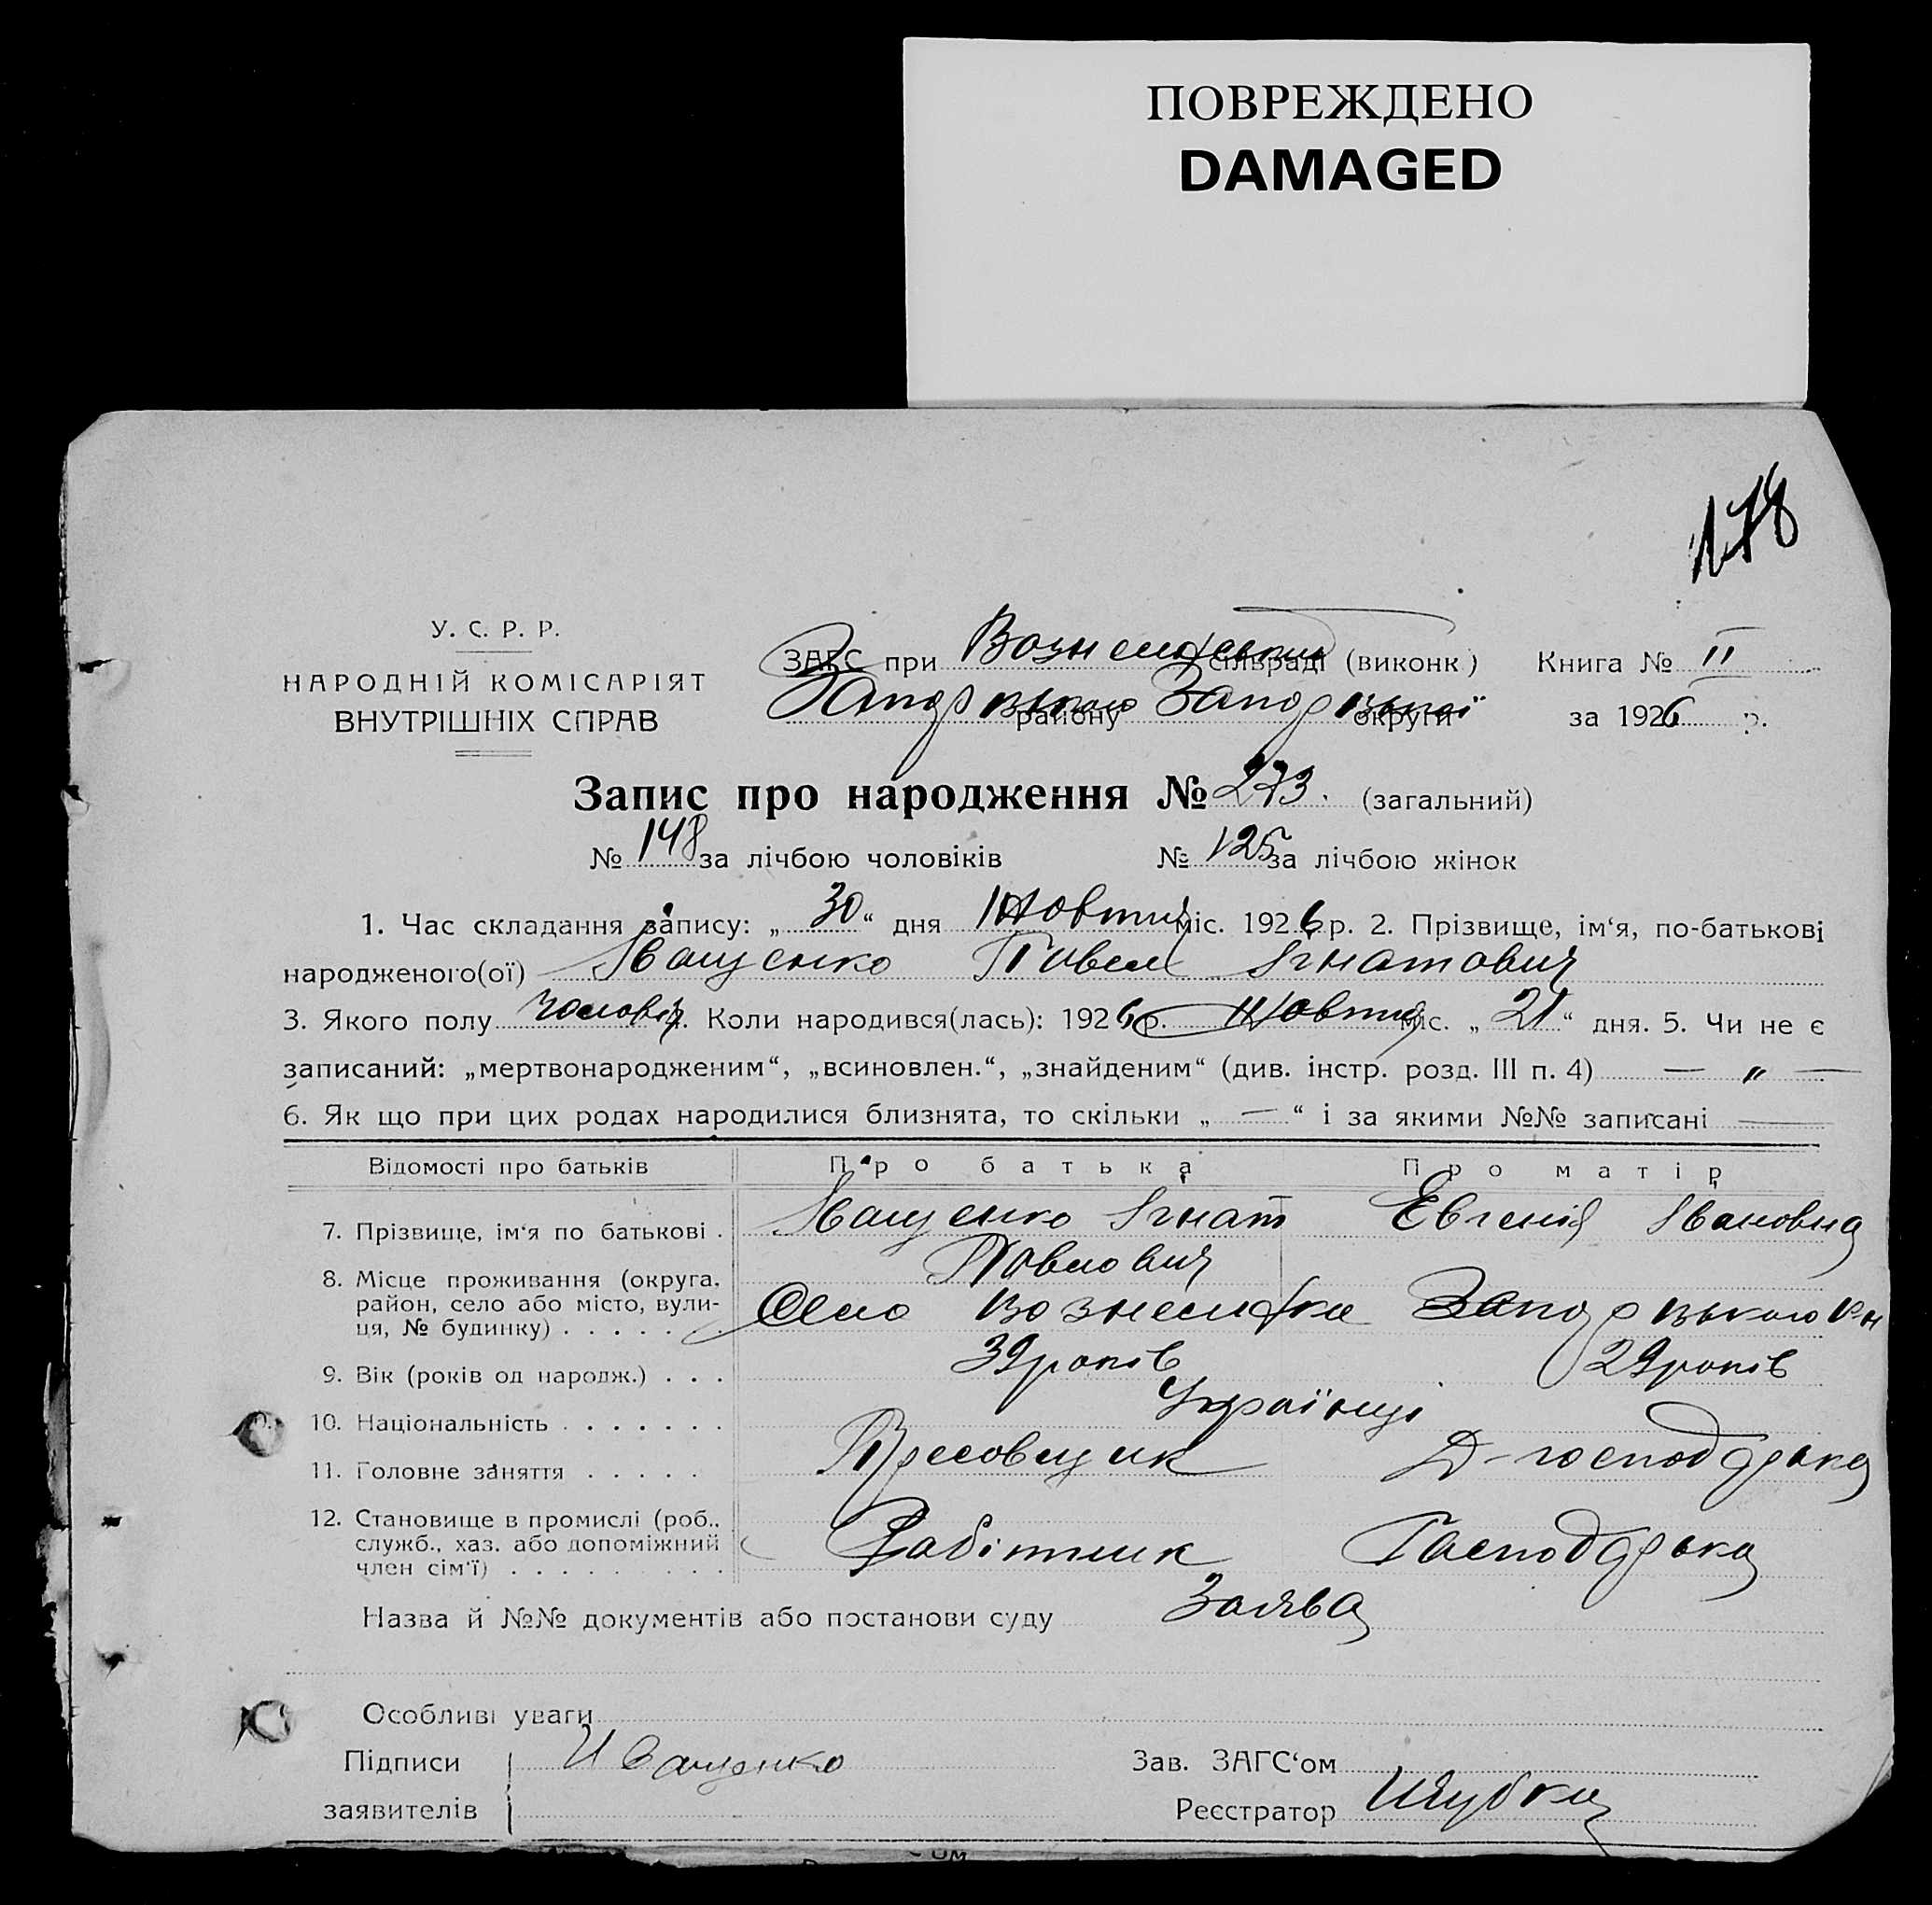 ПОВРЕЖДЕНО
DAMAGED
178
У. С. Р. Р.
НАРОДНІЙ КОМІСАРІЯТ
ВНУТРІШНІХ СПРАВ
ЗАГС при Вознесенський сільраді (виконк) Книга № II
Запорізького району Запорізької округи за 1926 р.
Запис про народження № 273. (загальний)
№ 148 за лічбою чоловіків № 125 за лічбою жінок
1. Час складання запису: „30“ дня Жовтня міс. 1926 р. 2. Прізвище, ім‘я, по-батькові
народженого(ої) Іващенко Павел Ігнатович
3. Якого полу чоловіч. Коли народився(лась): 1926 р. Жовтня міс. „21“ дня. 5. Чи не є
записаний: „мертвонародженим“, „всиновлен.“, „знайденим“ (див. інстр. розд. III п. 4) — „ —
6. Як що при цих родах народилися близнята, то скільки „—“ і за якими №№ записані —
Відомості про батьків Про батька Про матір
7. Прізвище, ім‘я по батькові . Іващенко Ігнат Евгенія Івановна
Павлович
8. Місце проживання (округа, район, село або місто, вули-
ця, № будинку) . . . . . Село Вознесенка Запорізького Р-н
9. Вік (років од народж.) . . . 39 років 29 років
10. Національність . . . . . . . Українці
11. Головне заняття . . . . . Пресовщик Д-господарька
12. Становище в промислі (роб.,
служб., хаз. або допоміжний
член сім‘ї) . . . . . . . . . Рабітник Господарька
Назва й №№ документів або постанови суду Заява
Особливі уваги
Підписи Иващенко Зав. ЗАГС‘ом
заявителів Реєстратор